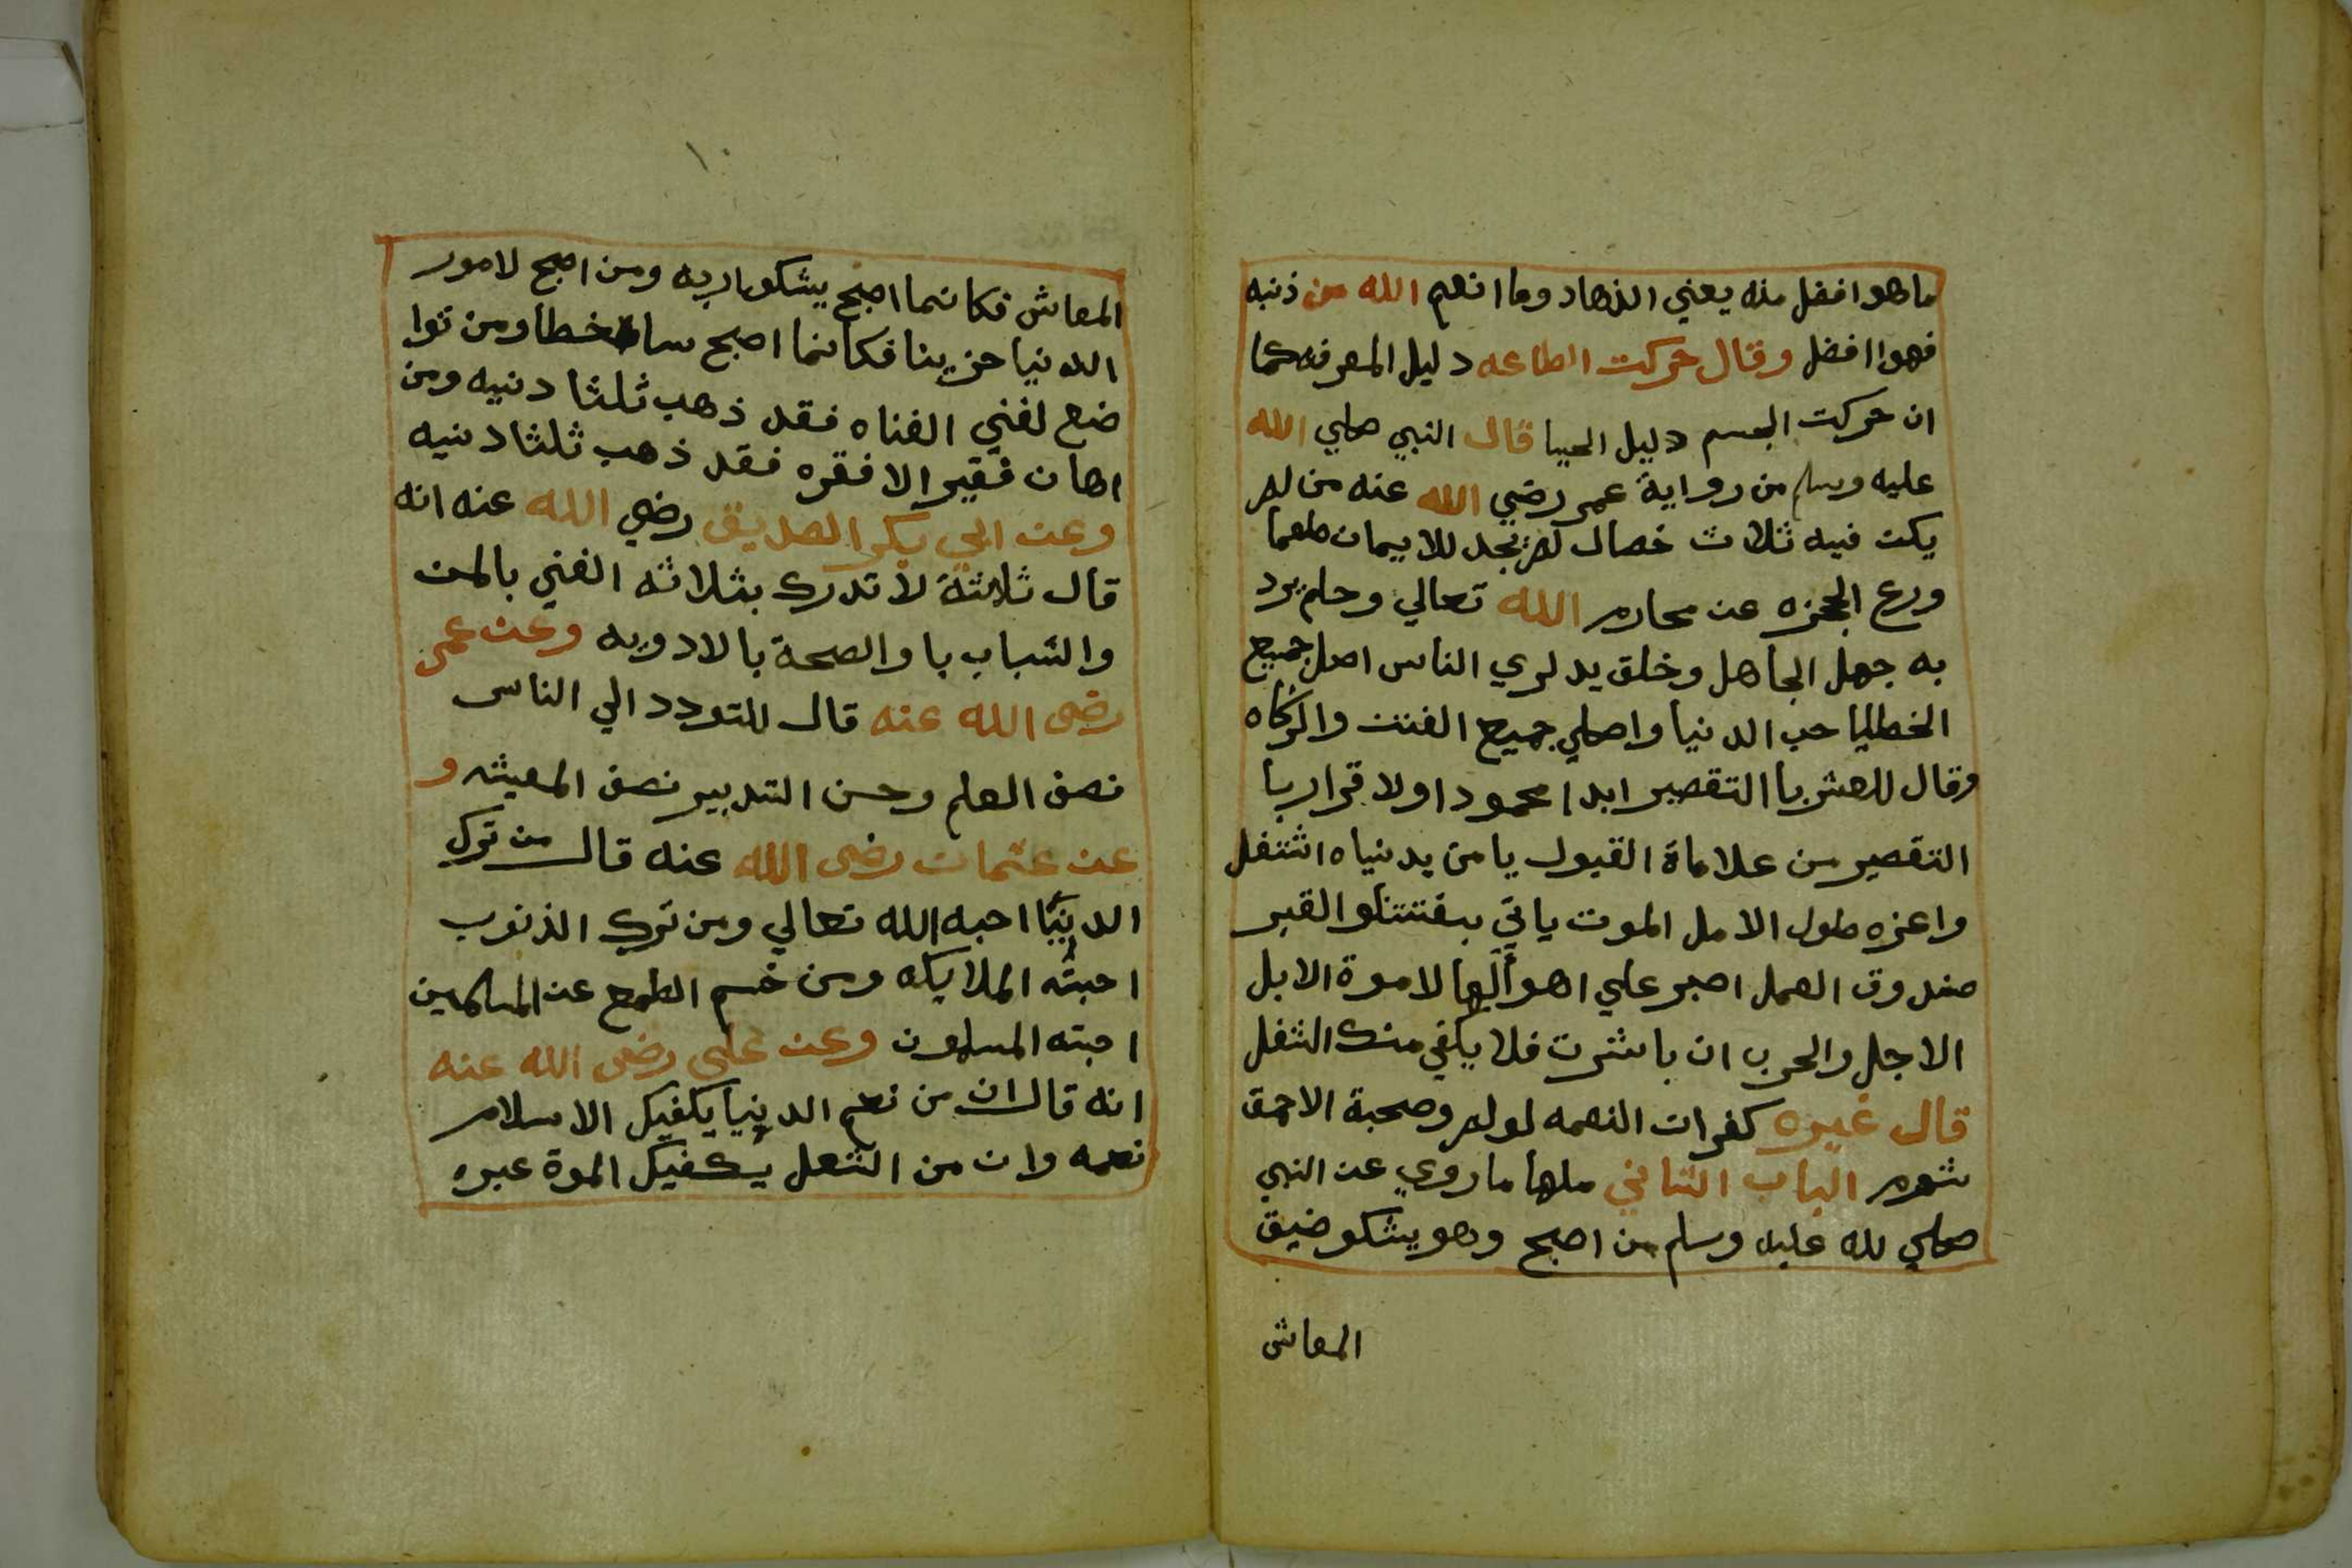 ما هو افضل منه يعني الذهاد وما انعم الله من ذنبه
فهوا افضل وقال حركت الطاعه دليل المعرفه كما
ان حركت الجسم دليل الحيا قال النبي صلي الله
عليه وسلم من رواية عمر رضي الله عنه من لم
يكن فيه ثلاث خصال لم يجد للايمان طعما
ورع الجحزه عن محارم الله تعالي وحلم يرد
به جهل الجاهل وخلق يدلري الناس اصل جميع
الخطايا حب الدنيا واصلي جميع الفتن والزكاه
وقال للعشر با التقصير ابدا محمودا ولا قرار با
التقصير من علاماة القبول يا من بدنياه اشتغل
واغره طول الامل الموت ياتي بغتتتلو القبر
صندوق العمل اصبر علي اهوالها لا موة الا بل
الاجل والحرب ان باشرت فلا يكفي منك الثفل
قال غيره كفران النعمه لولم وصحبة الاحمق
شوم الباب الثاني ملها ما روي عن النبي
صلي لله عليه وسلم من اصبح وهو يشكو ضيق
المعاش
١٠
المعاش فكانما اصبح يشكوا ربه ومن اصبح لامور
الدنيا حزينا فكانما اصبح ساخطا ومن توا
ضع لغني الغناه فقد ذهب ثلثا دنيه ومن
اهان فقيرا لا فقره فقد ذهب ثلثا دنيه
وعن ابي بكر الصديق رضي الله عنه انه
قال ثلاثة لا تدرك بثلاثه الغني بالمن
والشباب با والصحة بالادويه وعن عمر
رضي الله عنه قال للتودد الي الناس
نصف العلم وحسن التدبير نصف المعيشه و
عن عثمان رضي الله عنه قال من ترك
الدنيا احبه الله تعالي ومن ترك الذنوب
احبته الملايكه ومن خسم الطمع عن المسلمين
احبته المسلمون وعن علي رضي الله عنه
انه قال ان من نعم الدنيا يكفيك الاسلام
نعمه وان من الشعل يكفيك الموة عبره